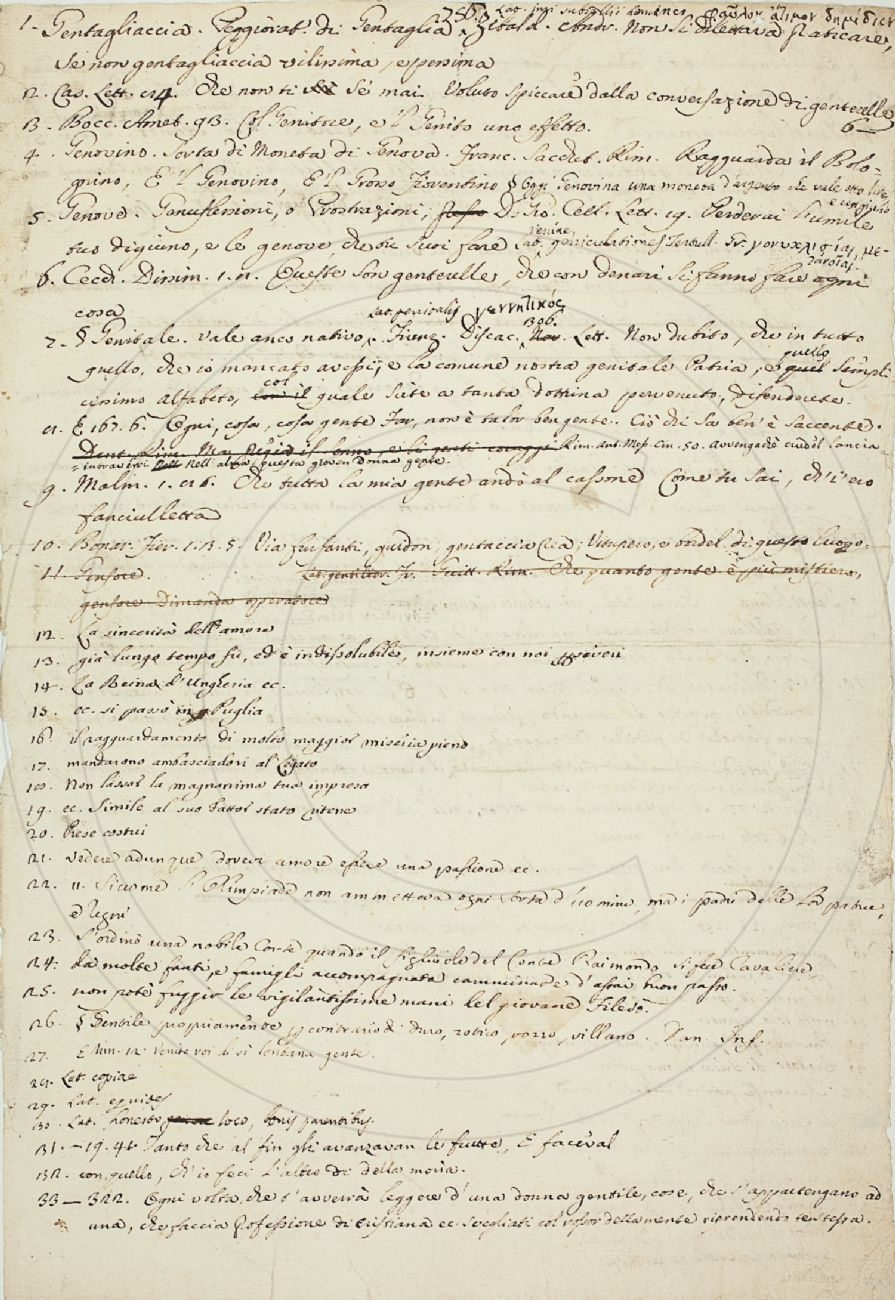 1. Gentagliaccia. Peggiorat. di Gentaglia. Zibald. Andr. Non si dilettava praticare,
Se non gentagliaccia vilissima, e pessima
2. Cas. Lett. 74. Che non ti sè mai voluto spiccare dalla conversazione di genterelle
3. Bocc. Amet. 93. Col Genitore, e 'l Genito uno effetto.
6
4. Genovino. Sorta di Moneta di Genova. Franc. Sacchet. Rim. Ragguarda il Bolo-
gnino, E 'l Genovino, E 'l Grosso Fiorentino § Oggi Genovina una moneta d'argento che vale otto lire
e un giulio
5. Genove. Genuflessioni, o Prostrazioni, D. Gio. Cell. Lett. 19. Perderai l'umile
tuo digiuno, e le genove, che tu suoi fare Lat. geniculationes Tertull. Gr. γονυκλισίαι, με-
τάνοιαι.
6. Cecch. Dissim. 1. 1. Queste son genterelle, che con denari si fanno fare ogni
cosa
Lat. γεννητικός
7. § Genitale. vale anco nativo. Firenz. Discac. 306. Lett. Non dubito, che in tutto
quello, che io mancato avessi, e la comune nostra genitale Patria, e quello sempli-
cissimo alfabeto, col quale siete a tanta dottrina pervenuto, difenderete.
8. E 167. 6. Ogni, cosa, cosa gente Far, non è talor ben gente. Ciò chi sa ben' è saccente.
Rim. Ant. Mess. Cin. 50. avvengachè
Nell' alma questa giovan donna gente.
9. Malm. 1. 86. Che tutta la mia gente andò al cassone Come tu sai, ch'i' ero
fanciulletta
10. Bonar. Fier. 1. 3. 5. Via furfanti, guidon, gentaccia rea; Vitupero, e bordel di questo luogo.
11. Gensore. Lat. gentilior. Fr. Guitt. Rim. Che quanto gente è più mistiero,
gensore dimanda operatore
12. La sincerità dell'amore
13. già lungo tempo fù, ed è indissolubile, insieme con noi
14. La Reina d'Ungheria ec.
15. ec. si passò in Puglia
16. il ragguardamento di molto maggior miseria pieno
17. mandarono ambasciadori al Legato
18. Non lassar la magnanima tua impresa
19. ec. Simile al suo Fattor stato ritene
20. Prese costui
21. vedere adunque dovevi amore essere una passione ec.
22. 11. Siccome l'Olimpiade non ammetteva ogni sorta d'uomini, ma i padri delle lor patrie,
e Regni
23. S'ordinò una nobile Corte quando il figliuolo del Conte Raimondo si fece Cavaliere,
24. da molte fanti, e famigli accompagnata camminando d'assai buon passo.
25. non potè fuggir le vigilantissime mani del giovane Fileno.
26. § Gentile propriamente contrario di duro, rotico, rozzo, villano. Dan. Inf.
27. E Rim. 12. Venite voi
28. Lat. copiae
29. Lat. equites
30. Lat. honesto loco, bonis parentibus.
31. — 19. 41. Tanto che al fin gli avanzavan le frutte, E faceval
32. con quello, ch'io feci l'altro dì della moria.
33 — 322. Ogni volta, che t'avverrà leggere d'una donna gentile, cose, che s'appartengano ad
una, che faccia professione di Cristiana ec. svegliati col rossor della mente riprendendo te stessa.